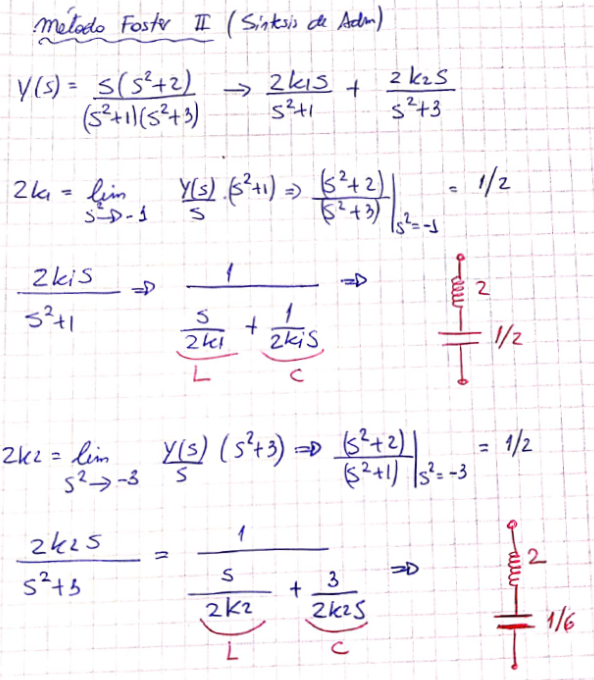 Método Foster II (Síntesis de Adm)
Y(s) = s(s²+2) / (s²+1)(s²+3) → 2k1s / s²+1 + 2k2s / s²+3
2k1 = lim s²→-1 Y(s)/s · (s²+1) ⇒ (s²+2)/(s²+3) | s²=-1 = 1/2
2kis / s²+1 ⇒ 1 / (s/2k1 + 1/2kis) ⇒
L C
2
1/2
2k2 = lim s²→-3 Y(s)/s (s²+3) ⇒ (s²+2)/(s²+1) | s²=-3 = 1/2
2k2s / s²+3 = 1 / (s/2k2 + 3/2k2s) ⇒
L C
2
1/6